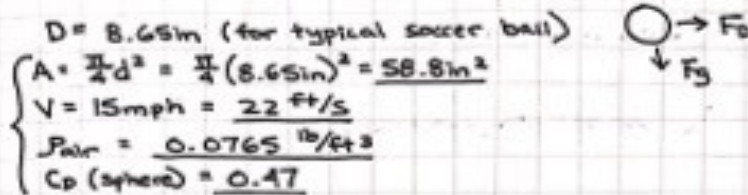 D = 8.65in (for typical soccer ball)
F_D
A = π/4 d² = π/4 (8.65in)² = 58.8in²
Fg
V = 15mph = 22 ft/s
ρair = 0.0765 lb/ft3
CD (sphere) = 0.47